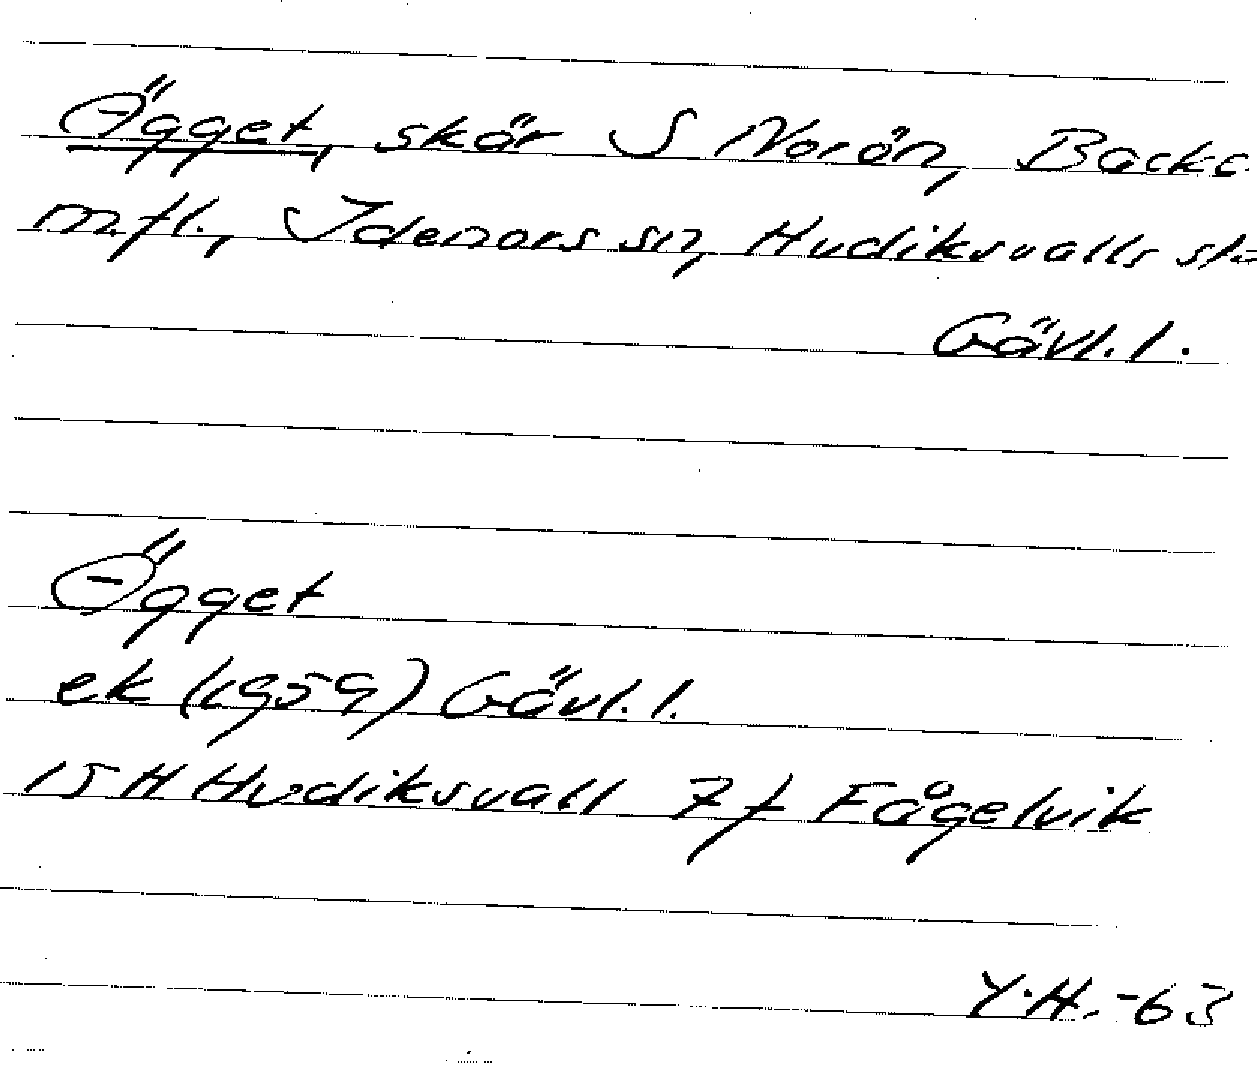 Ögget, skär S Norön, Backe
m.fl., Idenors sn, Hudiksvalls st
Gävl.l.
Ögget
ek (1959) Gävl.l.
15 H Hudiksvall 7 f Fågelvik
Y.H.-63